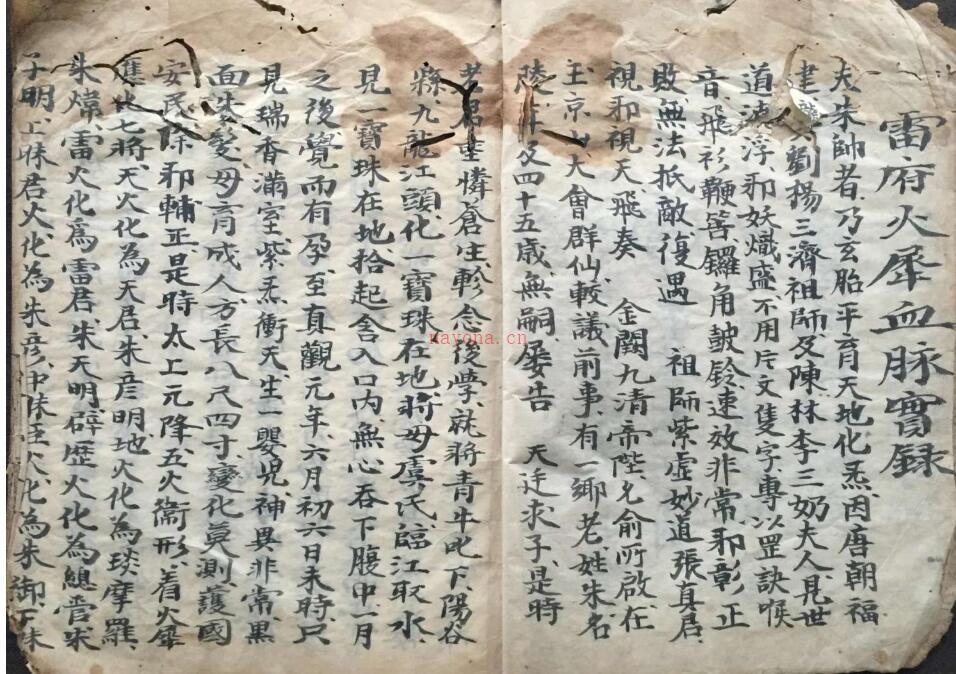 雷府火犀血脉實録
夫朱師者乃玄胎平育天地化炁因唐朝福
建 劉揚三濟祖師及陳林李三奶夫人見世
道 浮邪妖熾盛不用片文隻字專以罡訣喉
音飛衫鞭筶鑼角皷鈴速效非常邪彰正
敗無法抵敵復遇 祖師紫虛妙道張真君
視邪視天飛奏 金闕九清帝陛允俞所啟在
玉京山大會群仙較議前事有一鄉老姓朱名
陵 年及四十五歲無嗣屡告 天廷求子是時
老君 憐蒼生軫念後學就將青牛叱下陽谷
縣九龍江頭化一寶珠在地將母虞氏臨江取水
見一寶珠在地拾起含入口内無心吞下腹中一月
之後覺而有孕至真觀元年六月初六日未時只
見瑞香滿室紫炁衝天生一嬰児神異非常黑
面朱髮母育成人方長八尺四寸變化莫測護國
安民除邪輔正是時太上元降五火衞形着火犀
應化七將天火化為天君朱彦明地火化為琰摩羅
朱煒雷火化為雷君朱天明霹歷火化為總管朱
子明上昧君火化為朱彦中昧臣火化為朱御下昧
nayona.cn